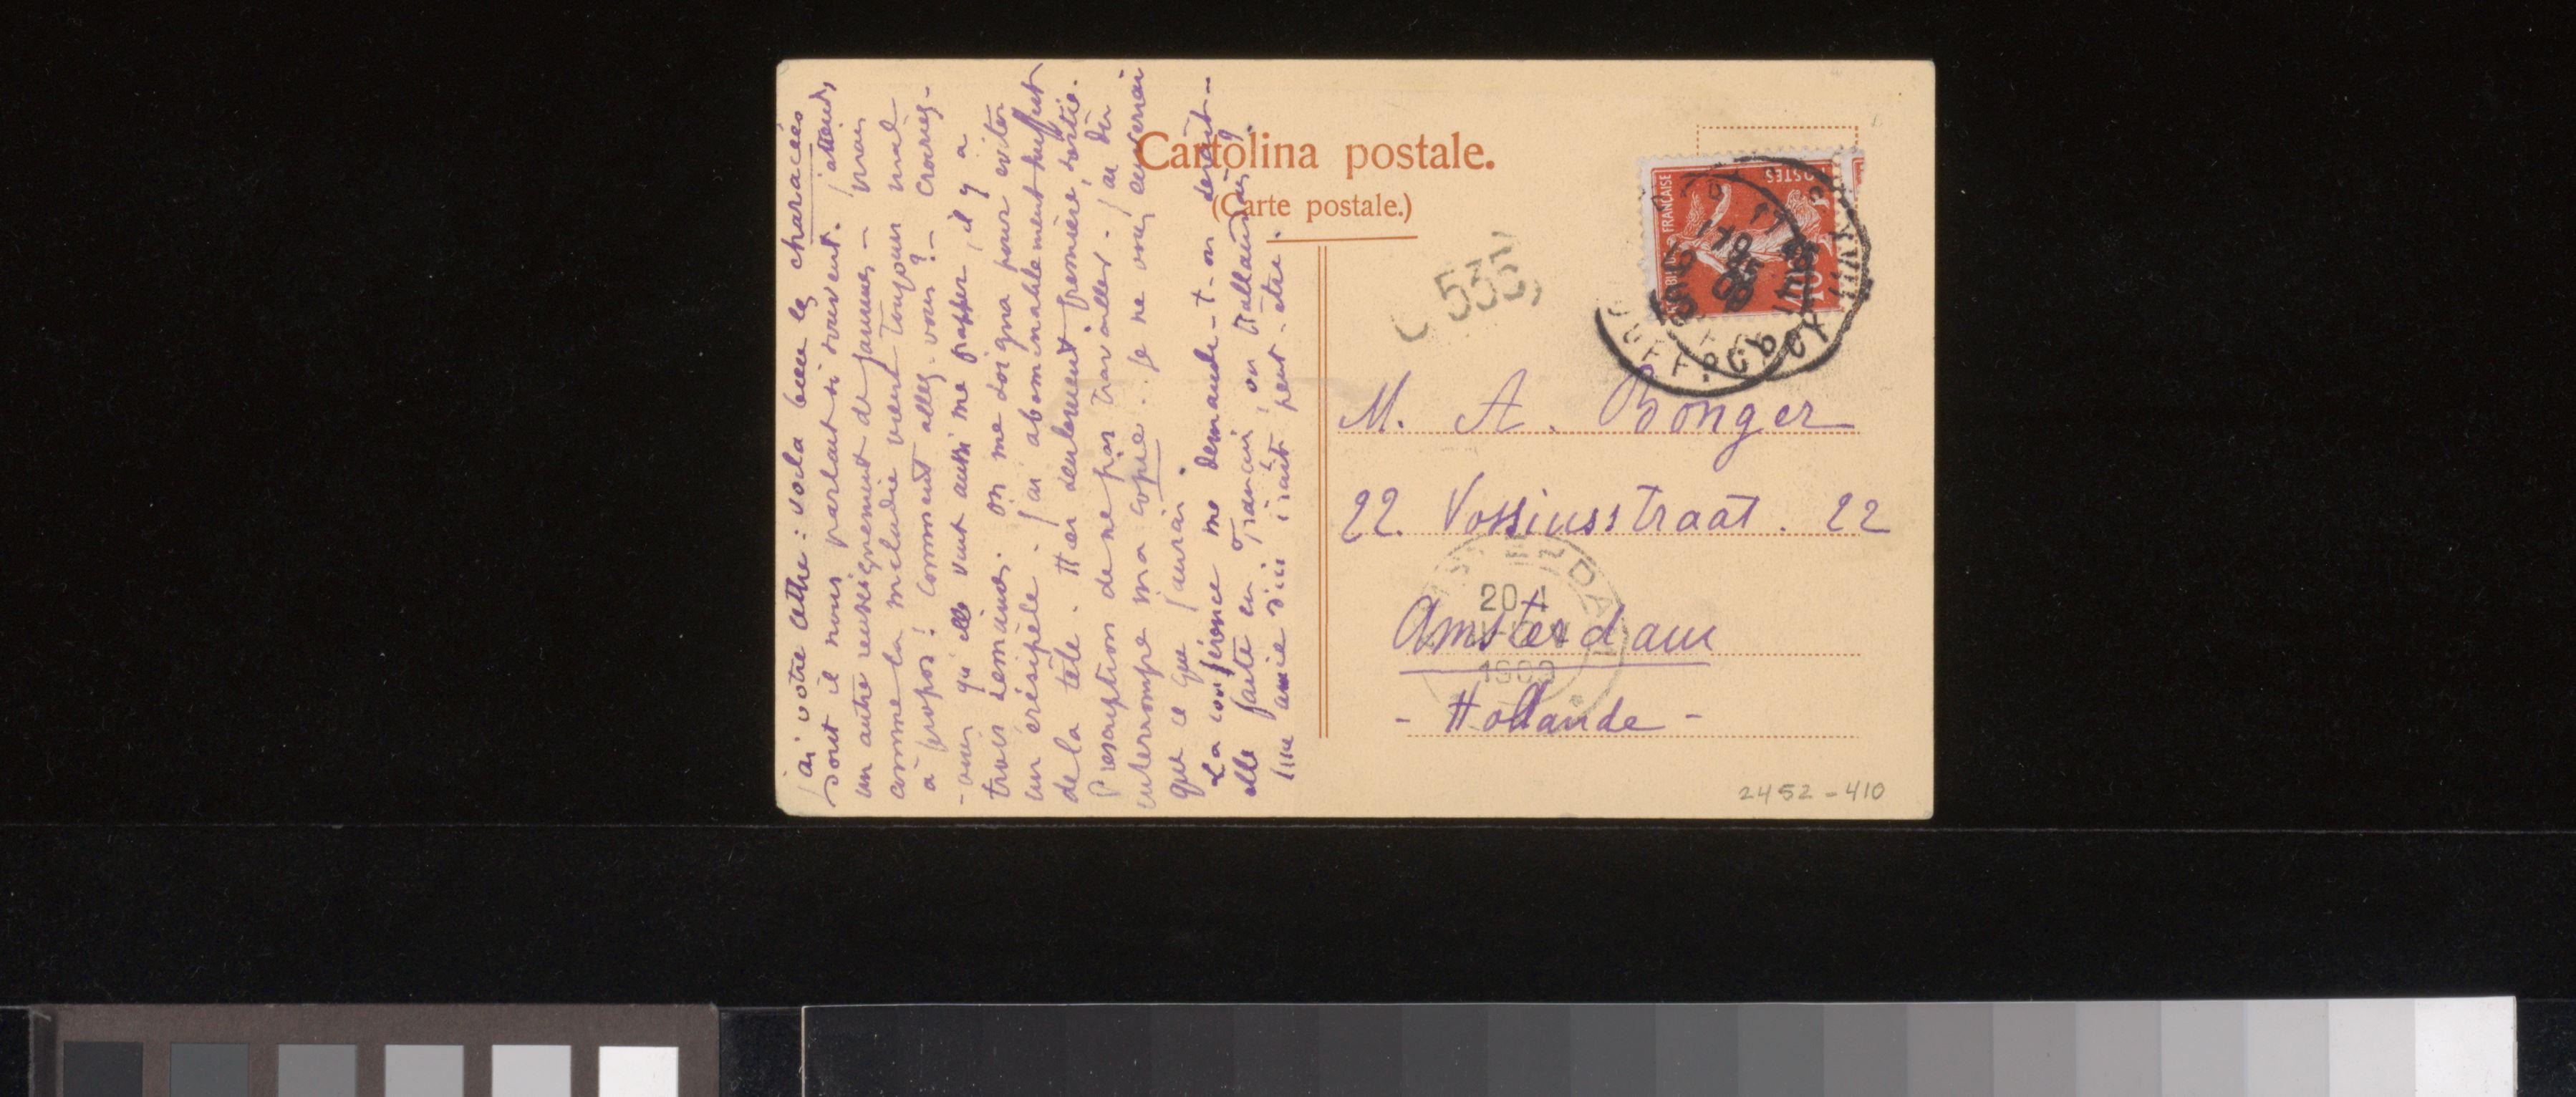 j'ai votre lettre : voila bien les characées
dont il nous parlait si souvent. j'attends
un autre renseignement de Jammes — mais
comme la melodie vient toujours mal
à propos ! comment allez-vous ? — croiriez-
-vous qu'elle vint aussi me frapper, il y a
trois semaines. on me soigna pour éviter
un erésipèle. j'ai abominablement souffert
de la tête. Hier seulement première sortie.
Prescription de ne pas travailler. j'ai dû
interrompre ma copie. je ne vous enverrai
que ce que j'aurai.
La conférence me demande-t-on serait-
elle faite en français, ou Hollandais ?
Une amie d'ici irait peut-être.
Cartolina postale.
(Carte postale.)
C 535,
FRANÇAISE
POSTES
10
M. A. Bonger
22. Vossiusstraat. 22
Amsterdam
- Hollande -
20-4
1909
2452 - 410